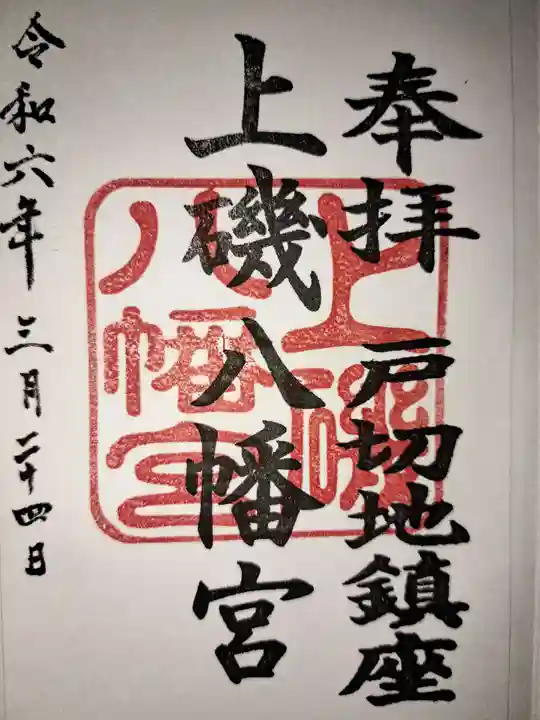 奉拝 戸切地鎮座
上磯八幡宮
令和六年三月二十四日
上磯
八幡宮